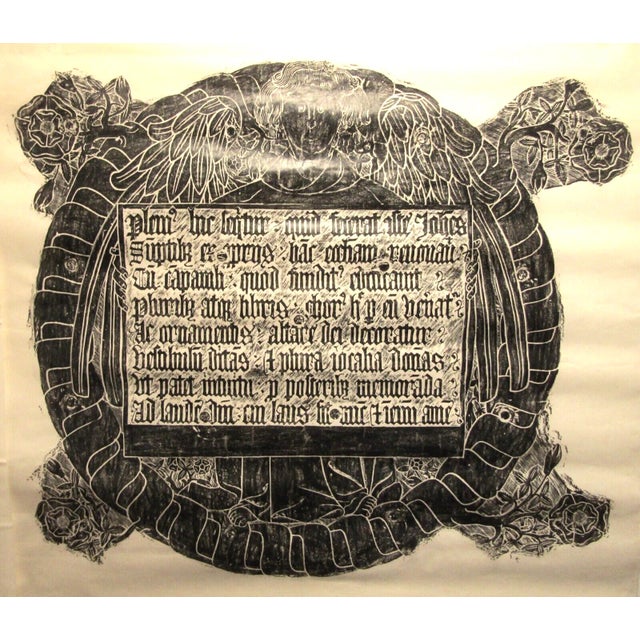 Pleni' hic legitur quid fecerat iste Joħes
Sumptibz ex pprijs hāc ecclīam renouauit
Cū capanili quod fundit' edificauit
pluribz atqz libris chor' hic p eū venāt'
Ac ornamentis altare dei decoratur
vestibulū ditās et plura iocalia donās
ut patet intuitu p posteribz memorāda
Ad laudē dn̄i cui laus sit nūc et ī eūū amē